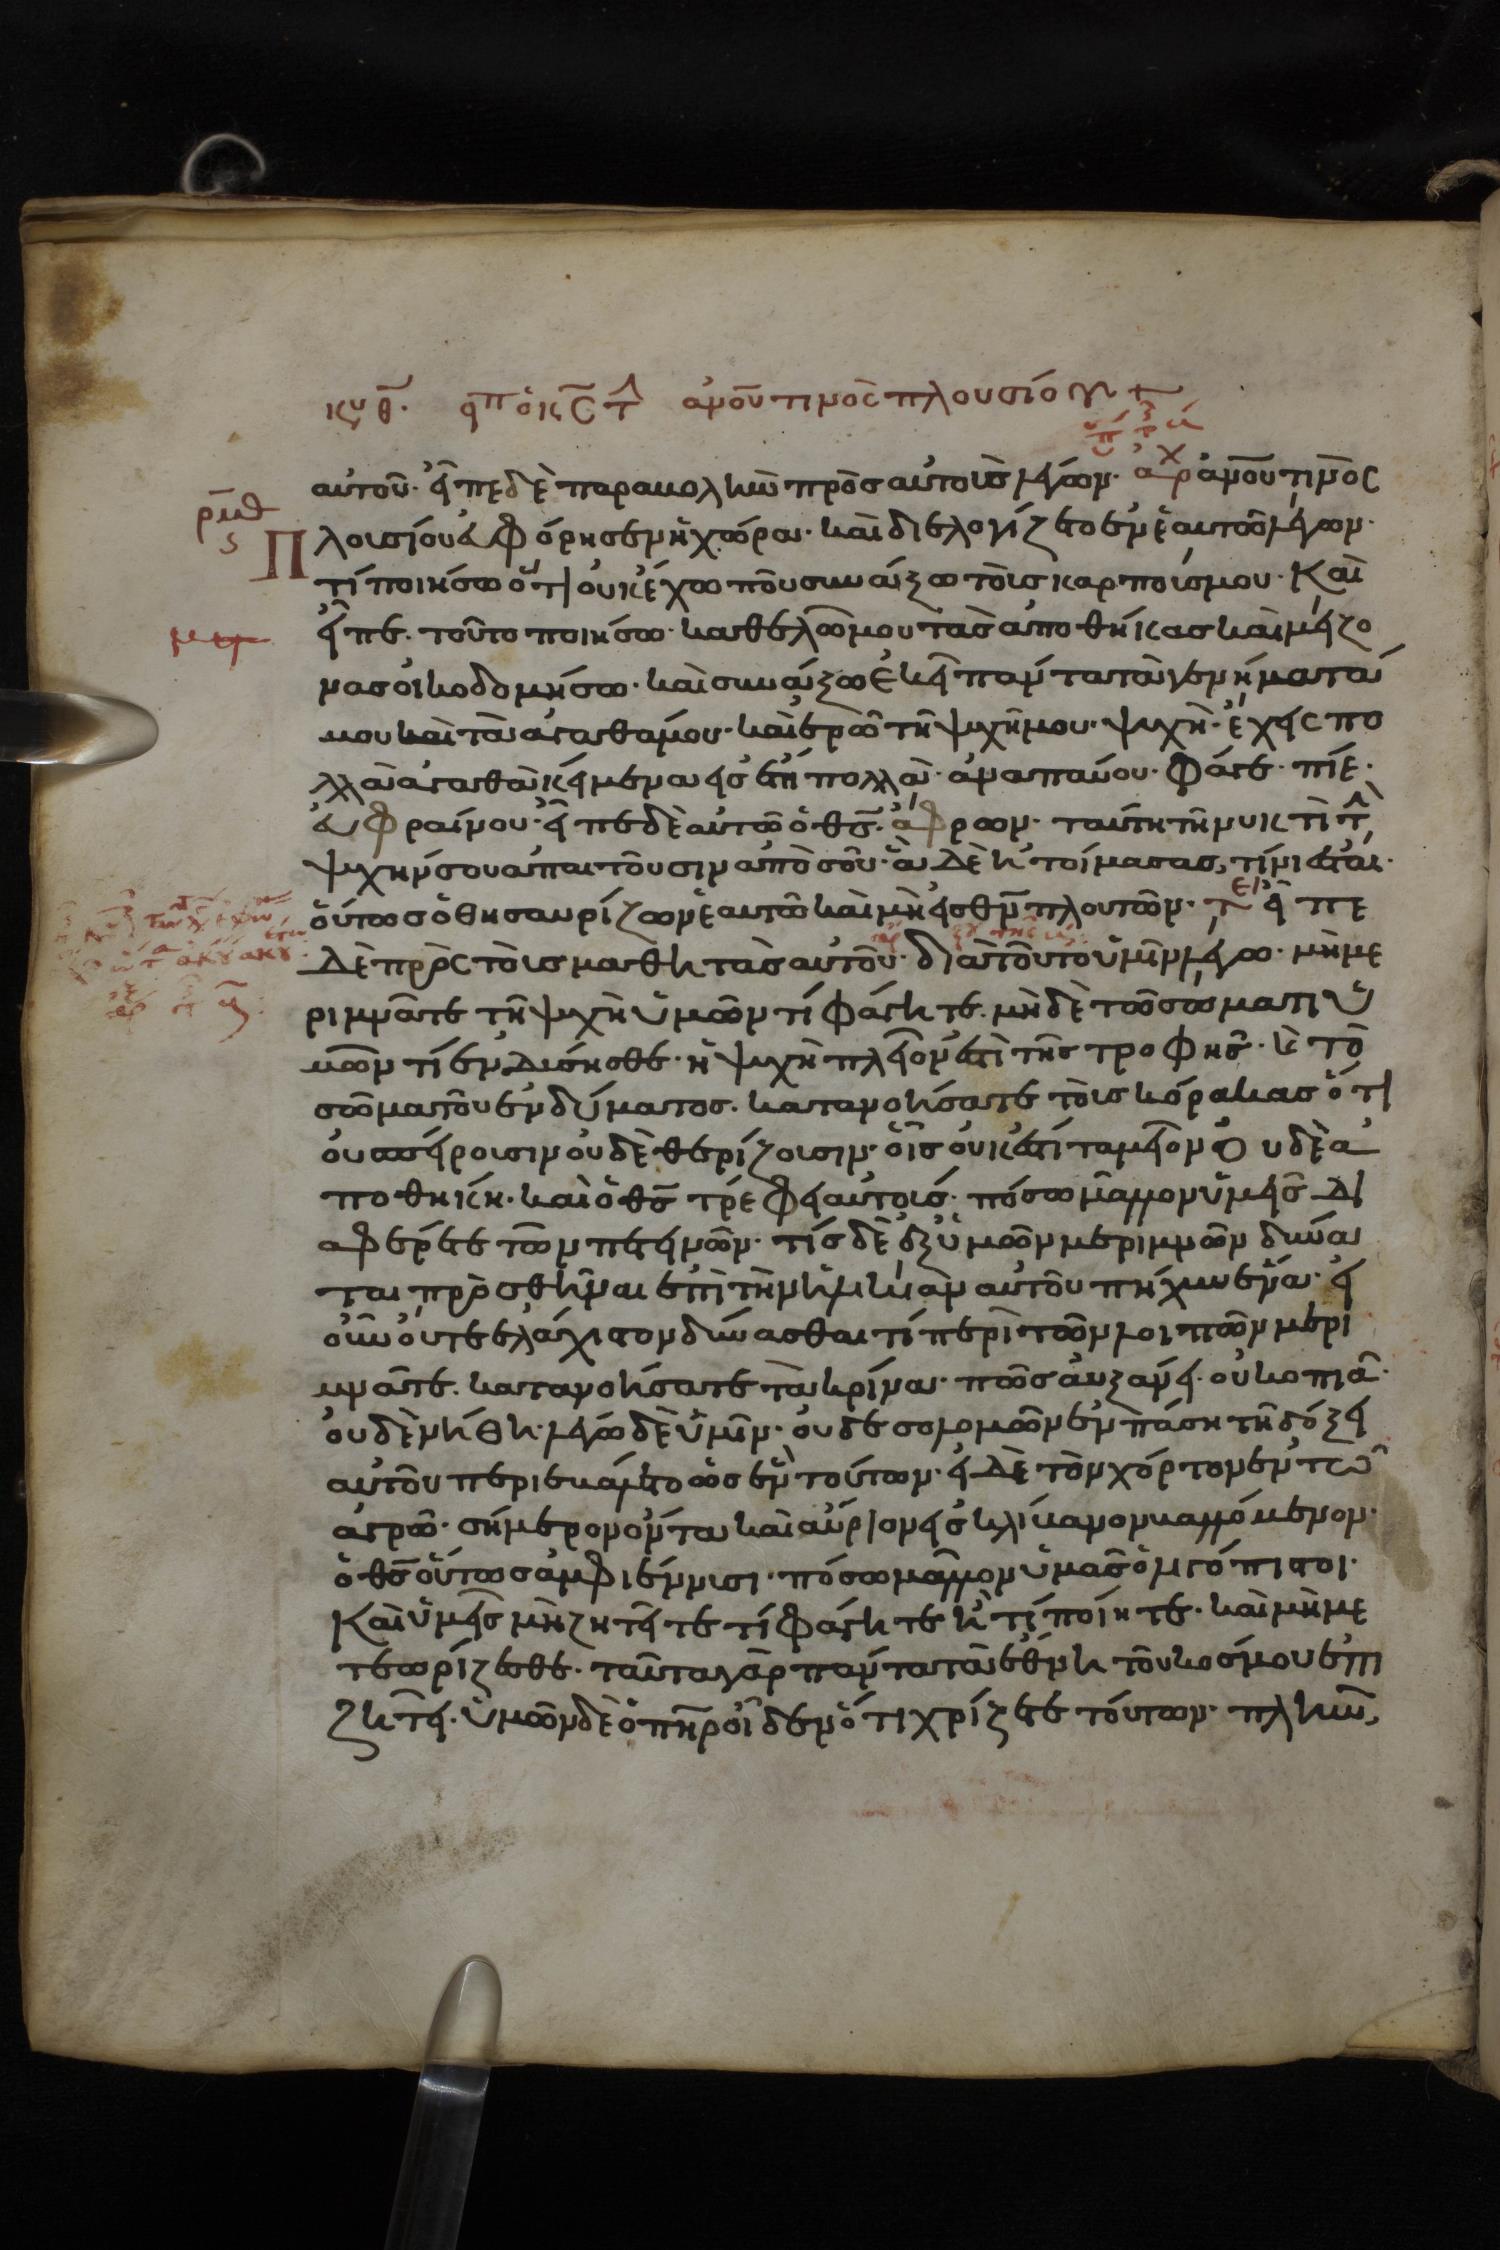 κυ θ. εἶπ ὁ κς τ ἀνου τινὸς πλουσίου
αὐτοῦ· εἶπε δὲ παραβολὴν πρὸς αὐτοὺς λέγων· ἀνου τινὸς
ρκθ
Πλουσίου εὐφόρησεν ἡ χώρα· καὶ διελογίζετο ἐν ἑαυτῶ λέγων·
τί ποιήσω ὅτι οὐκ ἔχω ποῦ συνάξω τοὺς καρπούς μου· Καὶ
εἶπε. τοῦτο ποιήσω· καθελῶ μου τὰς ἀποθήκας καὶ μείζο
νας οἰκοδομήσω· καὶ συνάξω ἐκεῖ πάντα τὰ γενήματά
μου καὶ τὰ ἀγαθά μου· καὶ ἐρῶ τῆ ψυχῆ μου· ψυχὴ· ἔχεις πο
λλὰ ἀγαθὰ κείμενα εἰς ἔτη πολλὰ· ἀναπαύου· φάγε· πίε·
εὐφραίνου· εἶπε δὲ αὐτῶ ὁ θς· ἄφρων· ταύτη τῆ νυκτὶ τ
ψυχήν σου ἀπαιτοῦσιν ἀπὸ σοῦ· ἃ δὲ ἡτοίμασας, τίνι ἔσται·
οὕτως ὁ θησαυρίζων ἑαυτῶ καὶ μὴ εἰς θν πλουτῶν· εἶπε
δὲ πρὸς τοὺς μαθητὰς αὐτοῦ· διὰ τοῦτο ὑμῖν λέγω· μὴ με
ριμνᾶτε τῆ ψυχῆ ὑμῶν τί φάγητε. μὴ δὲ τῶ σώματι ὑ
μῶν τί ἐνδύσησθε· ἡ ψυχὴ πλεῖον ἐστὶ τῆς τροφῆς· κ τὸ
σῶμα τοῦ ἐνδύματος. κατανοήσατε τοὺς κόρακας ὅτι
οὐ σπείρουσιν οὐδὲ θερίζουσιν· οἷς οὐκ ἔστι ταμεῖον οὐδὲ ἀ
ποθήκη· καὶ ὁ θς τρέφει αὐτούς· πόσω μᾶλλον ὑμεῖς δι
αφέρετε τῶν πετεινῶν· τίς δὲ ἐξ ὑμῶν μεριμνῶν δύνα
ται προσθῆναι ἐπὶ τὴν ἡλικίαν αὐτοῦ πῆχυν ἕνα· εἰ
οὖν οὔτε ἐλάχιστον δύνασθαι τί περὶ τῶν λοιπῶν μερι
μνᾶτε. κατανοήσατε τὰ κρίνα· πῶς αὐξάνει· οὐ κοπιᾶ·
οὐδὲ νήθη· λέγω δὲ ὑμῖν· οὐδὲ σολομῶν ἐν πάση τῆ δόξει
αὐτοῦ περιεβάλετο ὡς ἓν τούτων· εἰ δὲ τὸν χόρτον ἐν τῶ
ἀγρῶ· σήμερον ὄντα καὶ αὔριον εἰς κλίβανον βαλλόμενον·
ὁ θς οὕτως ἀμφιέννυσι· πόσω μᾶλλον ὑμᾶς ὀλιγόπιστοι·
Καὶ ὑμεῖς μὴ ζητεῖτε τί φάγητε ἢ τί ποίητε· καὶ μὴ με
τεωρίζεσθε· ταῦτα γὰρ πάντα τὰ ἔθνη τοῦ κόσμου ἐπι
ζητεῖ· ὑμῶν δὲ ὁ πηρ οἶδεν ὅτι χρίζετε τούτων· πλὴν